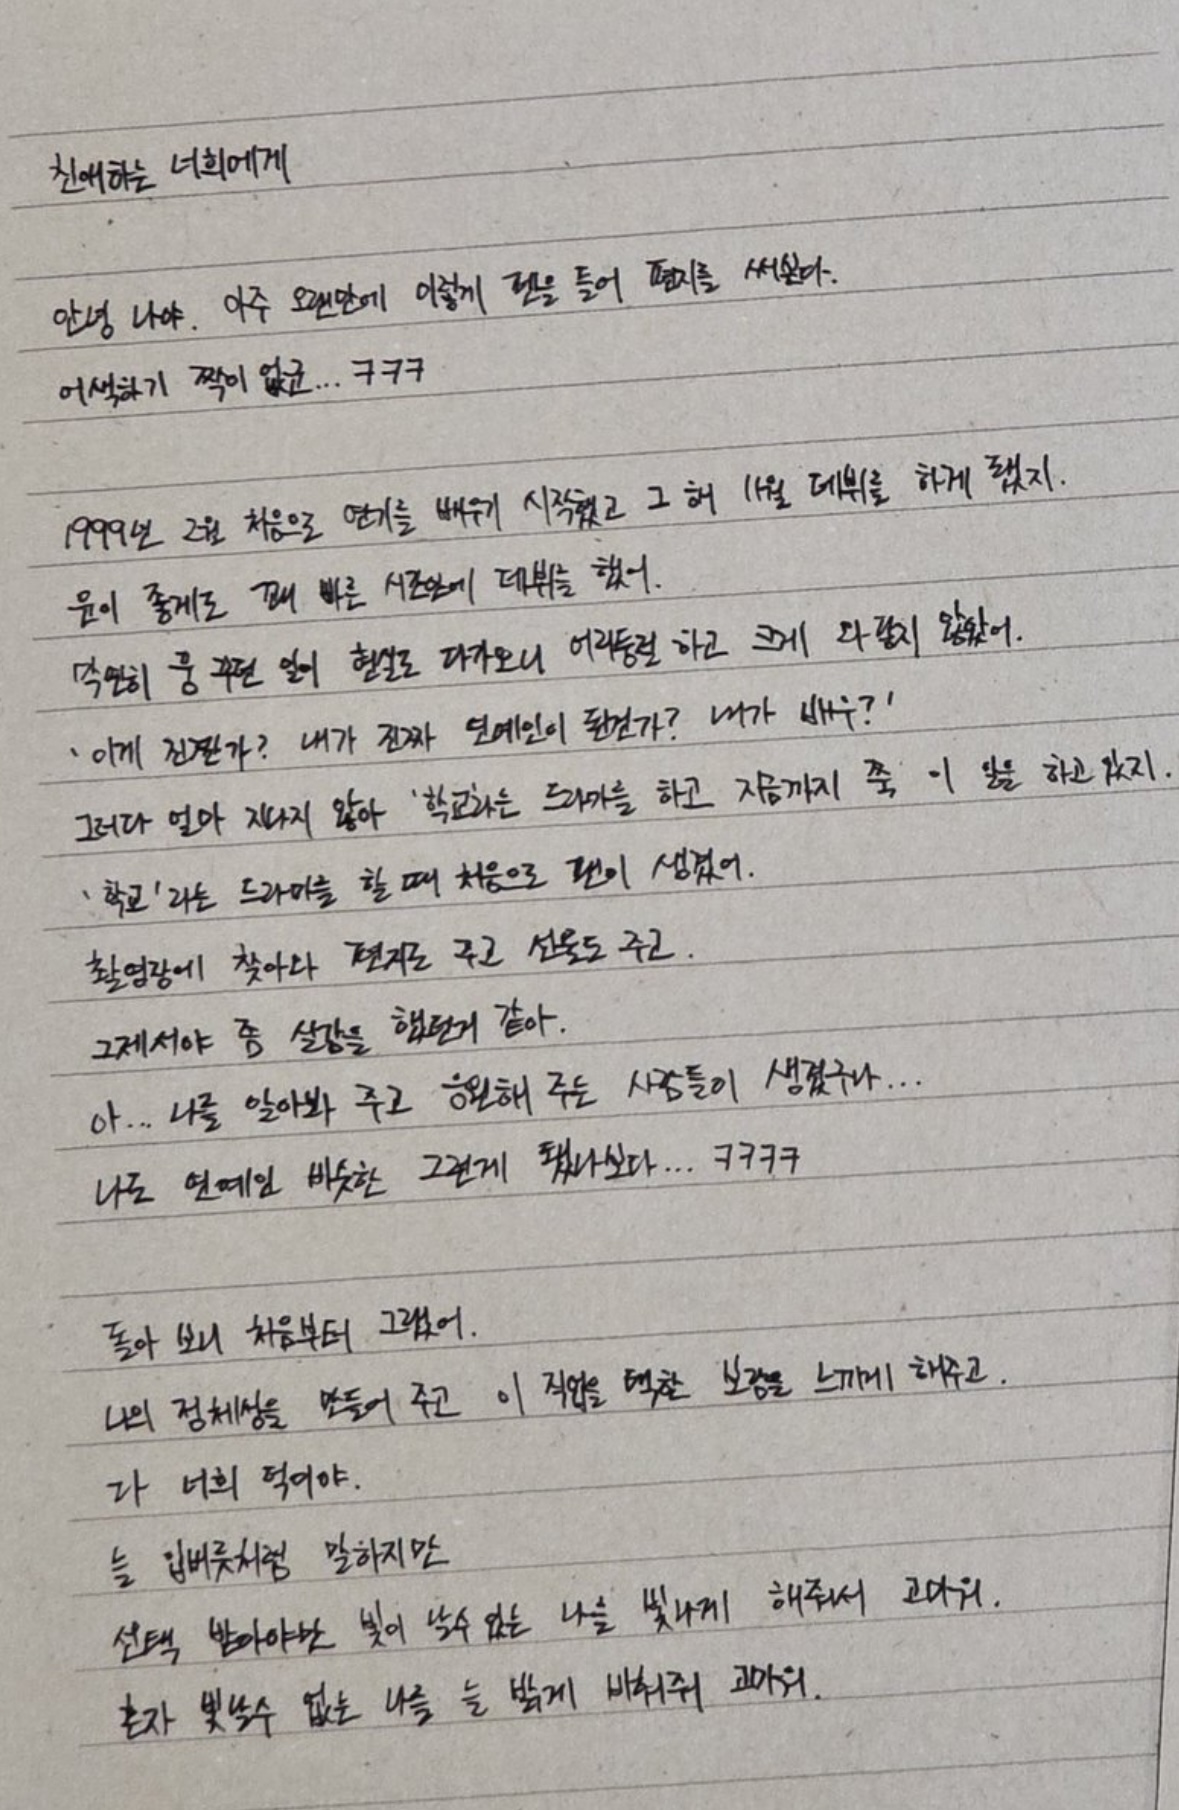 친애하는 너희에게
안녕 나야. 아주 오랜만에 이렇게 펜을 들어 편지를 써본다.
어색하기 짝이 없군... ㅋㅋㅋ
1999년 2월 처음으로 연기를 배우기 시작했고 그 해 11월 데뷔를 하게 됐지.
운이 좋게도 꽤 빠른 시간안에 데뷔를 했어.
막연히 꿈 꾸던 일이 현실로 다가오니 어리둥절 하고 크게 와 닿지 않았어.
'이게 진짠가? 내가 진짜 연예인이 된건가? 내가 배우?'
그러다 얼마 지나지 않아 '학교'라는 드라마를 하고 지금까지 쭉 이 일을 하고 있지.
'학교'라는 드라마를 할 때 처음으로 팬이 생겼어.
촬영장에 찾아와 편지도 주고 선물도 주고.
그제서야 좀 실감을 했던거 같아.
아... 나를 알아봐 주고 응원해 주는 사람들이 생겼구나...
나도 연예인 비슷한 그런게 됐나보다... ㅋㅋㅋㅋ
돌아 보니 처음부터 그랬어.
나의 정체성을 만들어 주고 이 직업을 택한 보람을 느끼게 해주고.
다 너희 덕이야.
늘 입버릇처럼 말하지만
선택 받아야만 빛이 날수 있는 나를 빛나게 해줘서 고마워.
혼자 빛날수 없는 나를 늘 밝게 비춰줘 고마워.